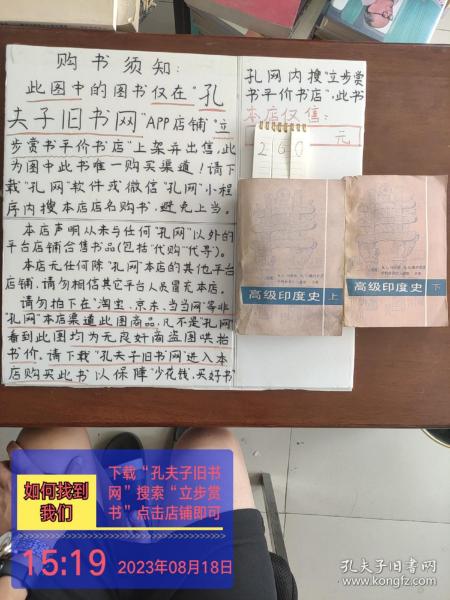 购书须知:
此图中的图书仅在“孔
夫子旧书网”APP店铺“立
步赏书平价书店”上架并出售,此
为图中此书唯一购买渠道!请下
载“孔网”软件或微信“孔网”小程
序内搜本店店名购书,避免上当。
本店声明从未与任何“孔网”以外的
平台店铺合售书品(包括“代购”“代寻)。
本店无任何除“孔网”本店的其他平台
店铺,请勿相信其它平台人员冒充本店。
请勿拍下在“淘宝、京东、当当网”等非
“孔网”本店渠道此图商品,凡不是“孔网”
看到此图均为无良奸商盗图哄抬
书价。请下载“孔夫子旧书网”进入本
店购买此书以保障“少花钱,买好书”
孔网内搜“立步赏
书平价书店”,此书
本店仅售:
260
元
高级印度史 上
高级印度史 下
如何找到
我们
下载“孔夫子旧书
网”搜索“立步赏
书”点击店铺即可
15:19 2023年08月18日
孔夫子旧书网
www.kongfz.com